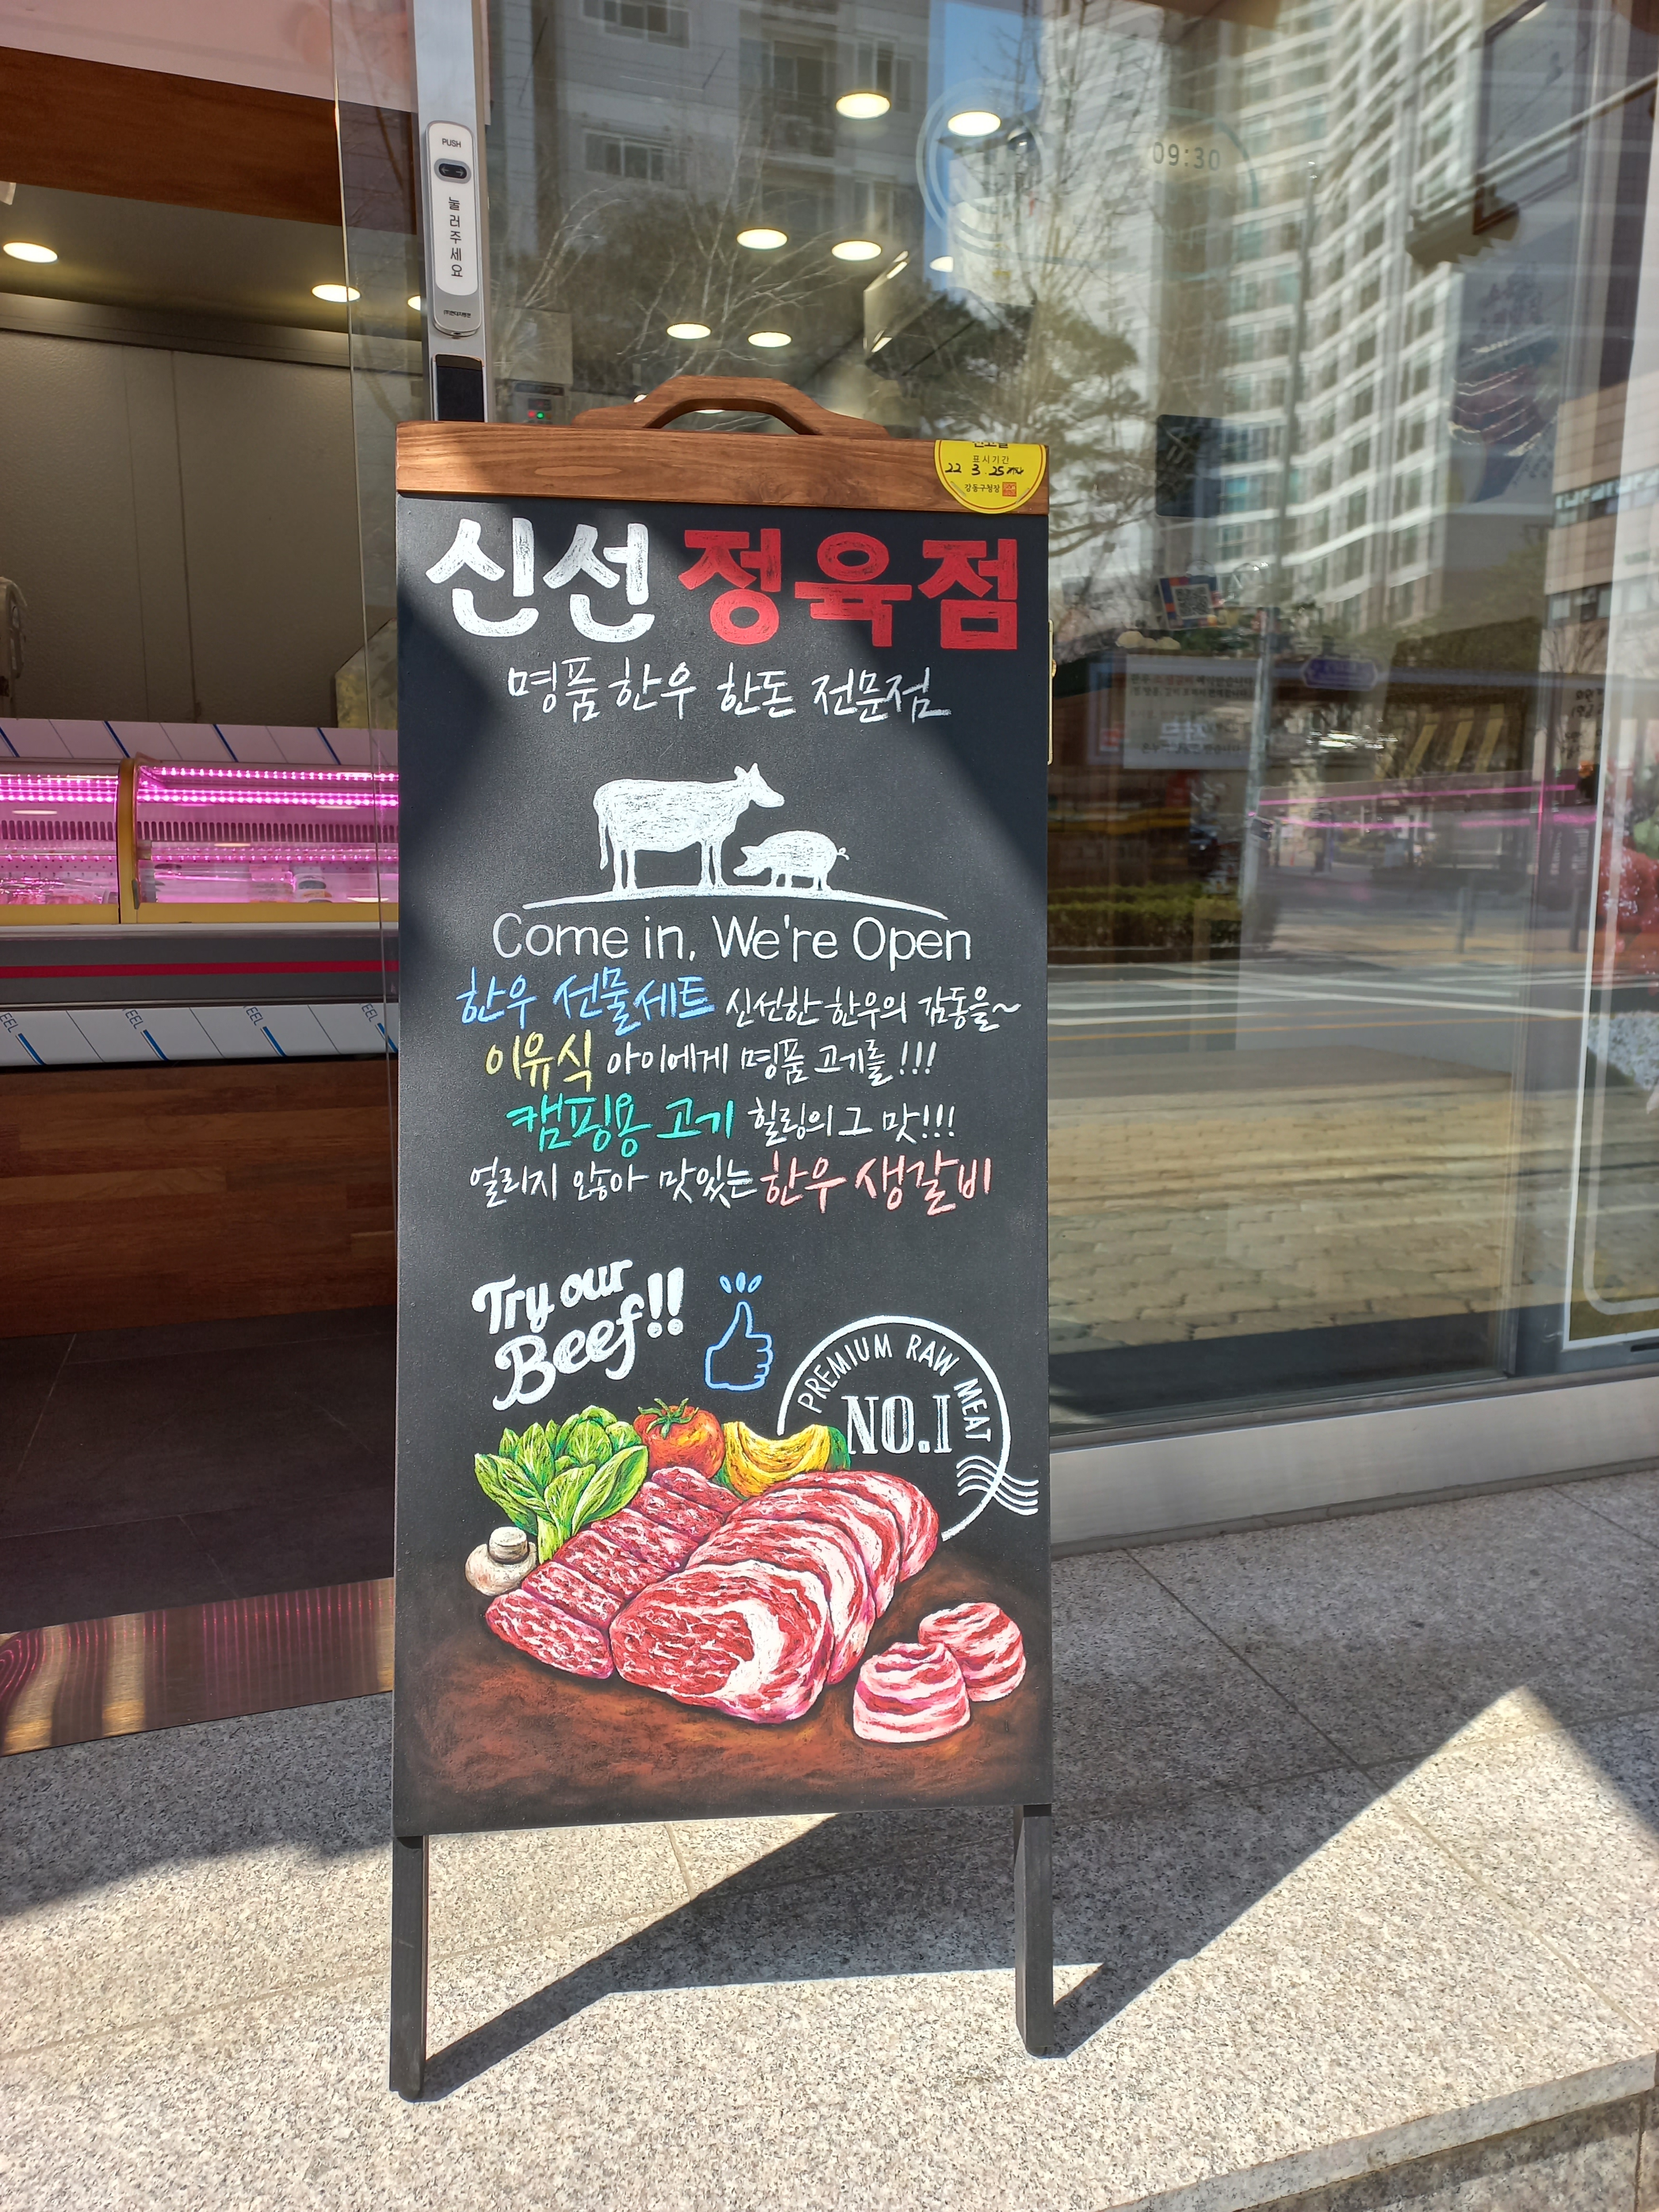 PUSH
눌러주세요
09:30
표시기간
22 3 25
강동구청장
신선 정육점
명품 한우 한돈 전문점
Come in, We're Open
한우 선물세트 신선한 한우의 감동을~
이유식 아이에게 명품 고기를!!!
캠핑용 고기 힐링의 그 맛!!!
얼리지 않아 맛있는 한우 생갈비
Try our
Beef!!
PREMIUM RAW MEAT
NO.1